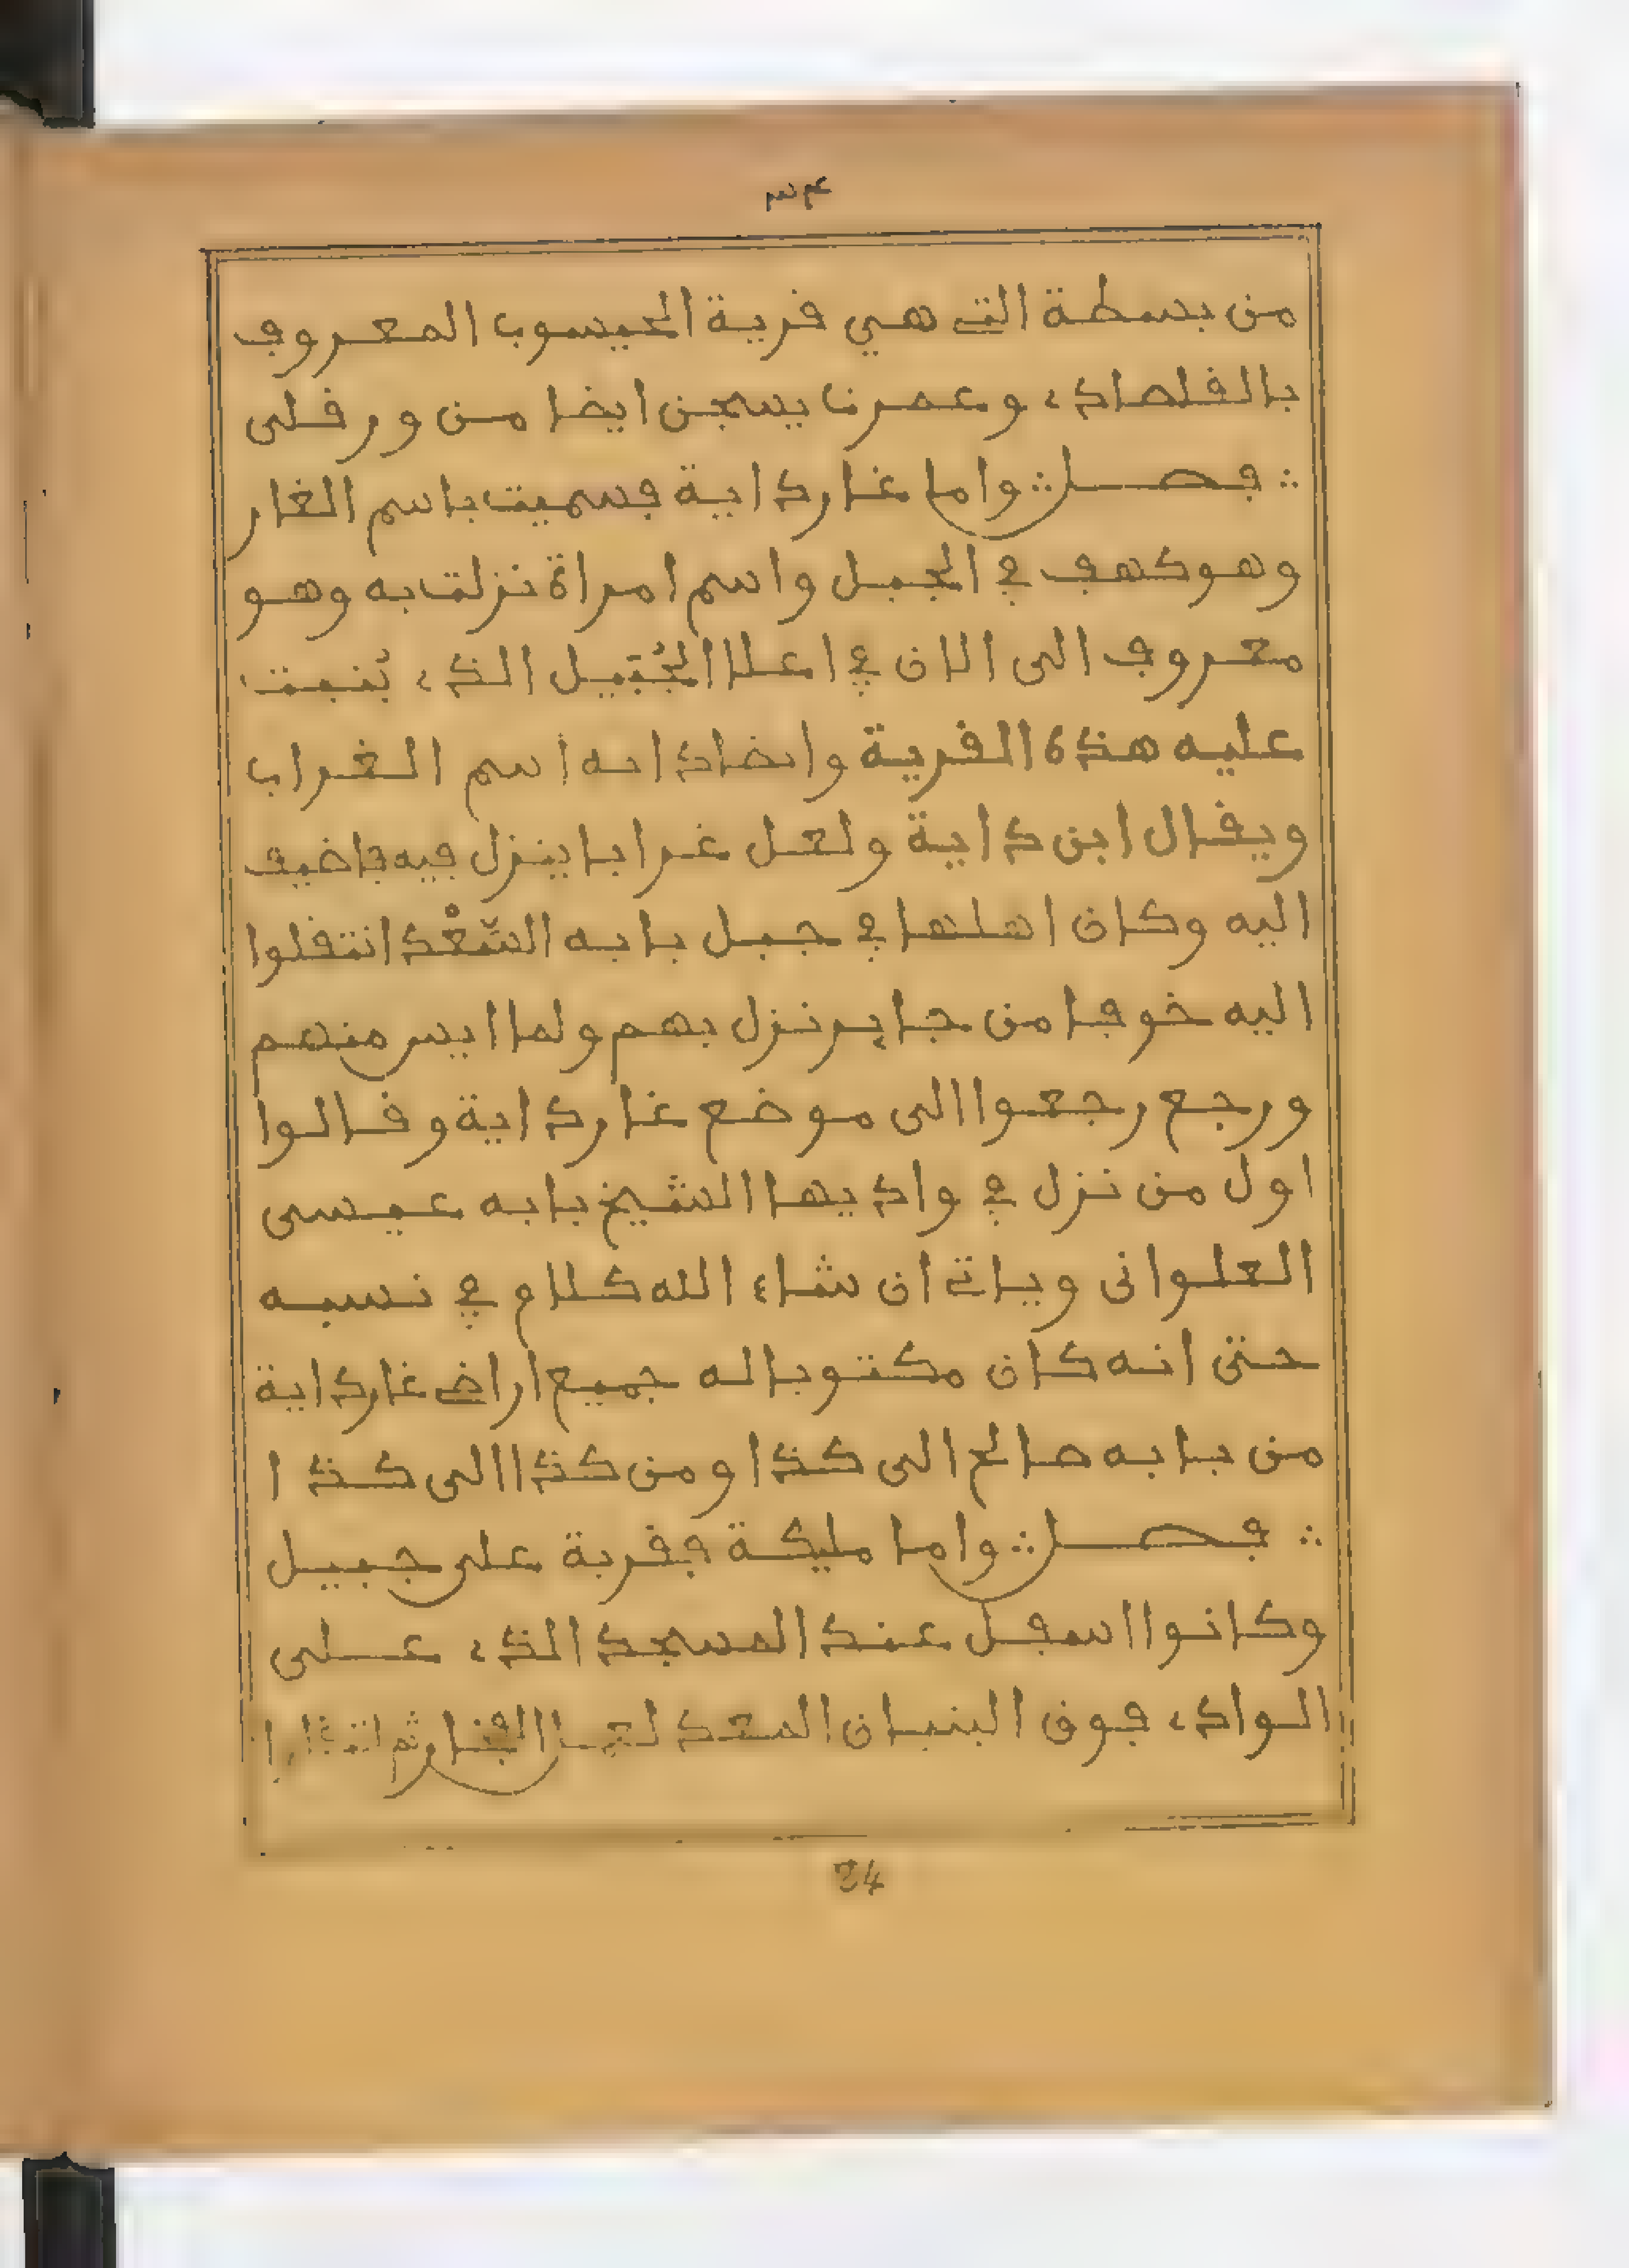 ٣٤
من بسطة التي هي قرية الحيسوب المعروف
بالقلصادي وعمرنا يسجن ايضا من ورقلى
∴ فصل ∴ واما غارداية فسميت باسم الغار
وهو كهف في الجبل واسم امراة نزلت به وهو
معروف الى الان في اعلا الجُبَيل الذي بُنيت
عليه هذه القرية وايضا داية اسم الغراب
ويقال ابن داية ولعل غرابا ينزل فيه فاضيف
اليه وكان اهلها في جبل بابه السّعْد انتقلوا
اليه خوفا من جاير نزل بهم ولما ايس منهم
ورجع رجعوا الى موضع غارداية وقالوا
اول من نزل في واديها الشيخ بابه عيسى
العلواني وياتي ان شاء الله كلام في نسبه
حتى انه كان مكتوبا له جميع اراضي غارداية
من بابه صالح الى كذا ومن كذا الى كذا
∴ فصل ∴ واما مليكة فقرية على جبيل
وكانوا اسفل عند المسجد الذي على
الوادي فوق البنيان المعد لعمل الفخار ثم
34